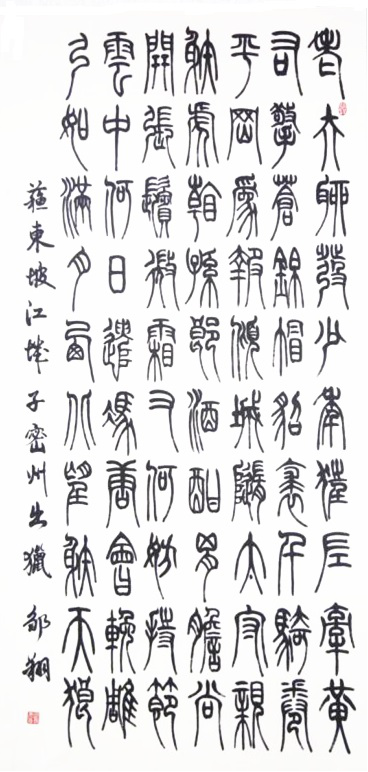 老夫聊發少年狂左牽黃
右擎蒼錦帽貂裘千騎卷
平岡為報傾城隨太守親
射虎看孫郎酒酣胸膽尚
開張鬢微霜又何妨持節
雲中何日遣馮唐會挽雕
弓如滿月西北望射天狼
蘇東坡江城子密州出獵 鄒翔